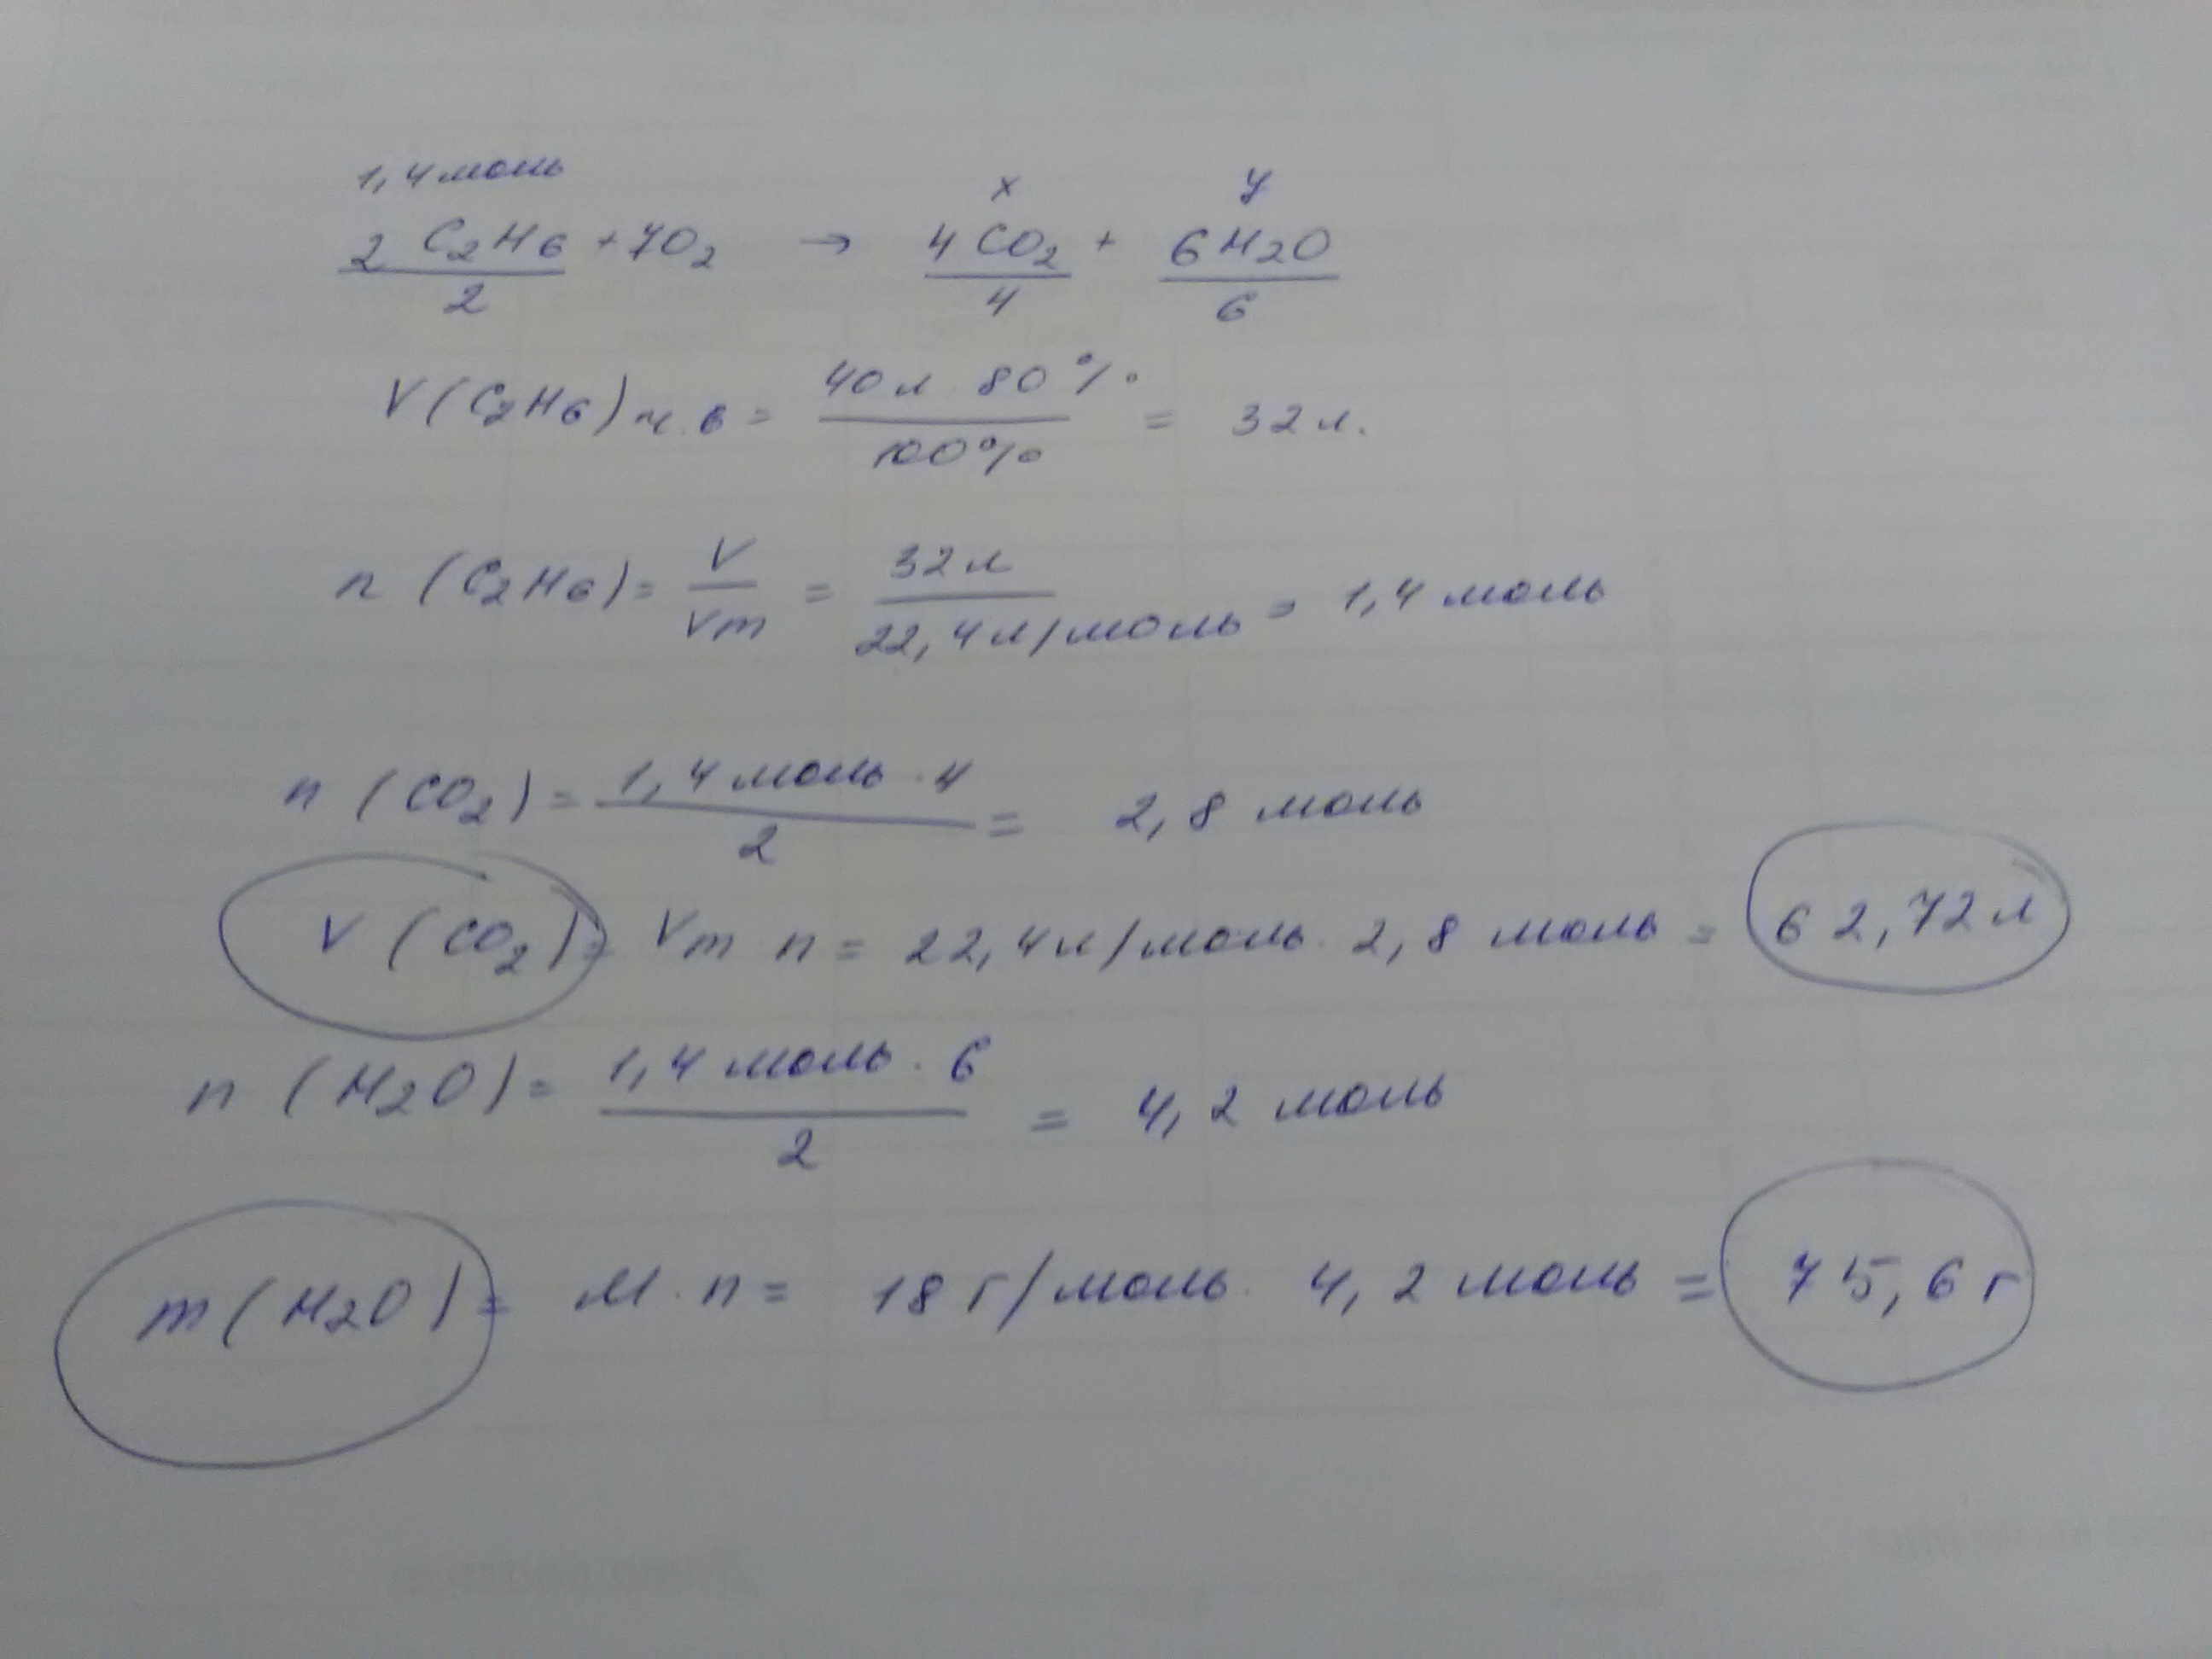 1,4 моль x y
2 C2H6 + 7O2 → 4 CO2 + 6 H2O
2 4 6
V (C2H6) ч.в = 40 л · 80 % / 100 % = 32 л.
n (C2H6) = V / Vm = 32 л / 22,4 л/моль = 1,4 моль
n (CO2) = 1,4 моль · 4 / 2 = 2,8 моль
V (CO2) = Vm · n = 22,4 л/моль · 2,8 моль = 62,72 л
n (H2O) = 1,4 моль · 6 / 2 = 4,2 моль
m (H2O) = M · n = 18 г/моль · 4,2 моль = 75,6 г